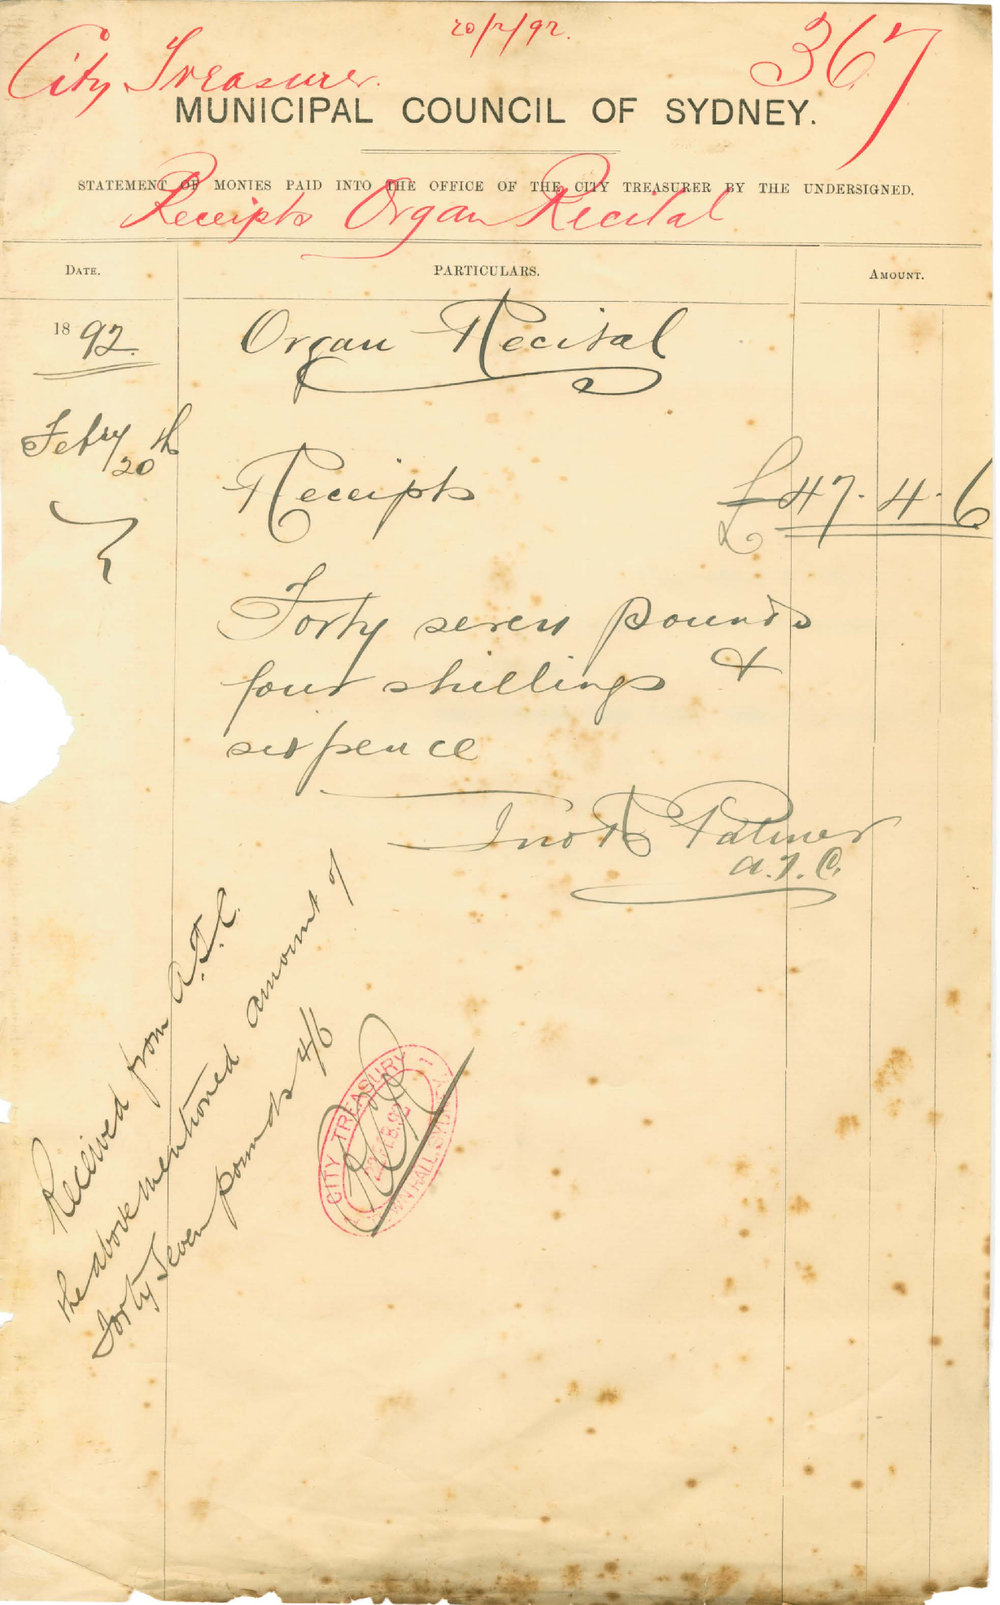 20/2/92.
City Treasurer.
367
MUNICIPAL COUNCIL OF SYDNEY.
STATEMENT OF MONIES PAID INTO THE OFFICE OF THE CITY TREASURER BY THE UNDERSIGNED.
Receipts Organ Recital
DATE. PARTICULARS. AMOUNT.
1892. Organ Recital
Febry 20th
Receipts £47.4.6
Forty seven pounds
four shillings &
sixpence
Jno R Palmer
A.T.C.
Received from A.T.C.
the above mentioned amount of
Forty Seven pounds 4/6
CITY TREASURY